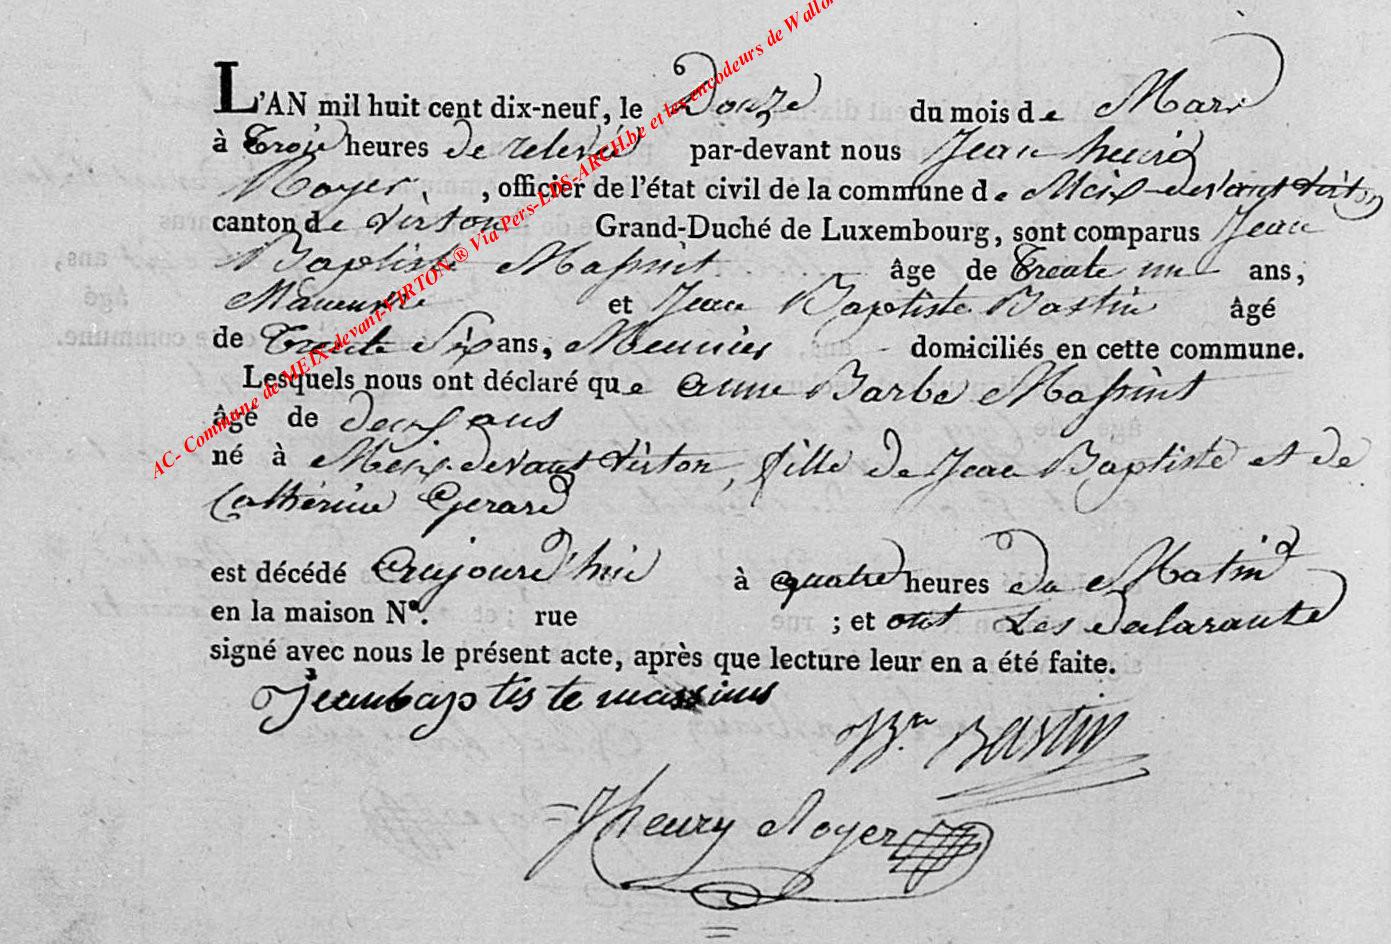 L'AN mil huit cent dix-neuf, le Douze du mois de Mars
à Trois heures de relevé par-devant nous Jean henri
Noyer, officier de l'état civil de la commune de Meix devant virton
canton de virton Grand-Duché de Luxembourg, sont comparus Jean
Baptiste Massint âge de Trente un ans,
Maneuvre et Jean Baptiste Bastin âgé
de Trente Six ans, Meunier domiciliés en cette commune.
Lesquels nous ont déclaré que anne Barbe Massint
âge de deux ans
né à Meix devant virton, fille de Jean Baptiste et de
Catherine Gerard
est décédé aujourd'hui à quatre heures du Matin
en la maison N°. rue ; et ont Les déclarants
signé avec nous le présent acte, après que lecture leur en a été faite.
Jeanbaptiste massint
JBte Bastin
Jhenry Noyer
AC- Commune de MEIX-devant-VIRTON ® Via Pers-EDS-ARCH.be et les encodeurs de Wallo